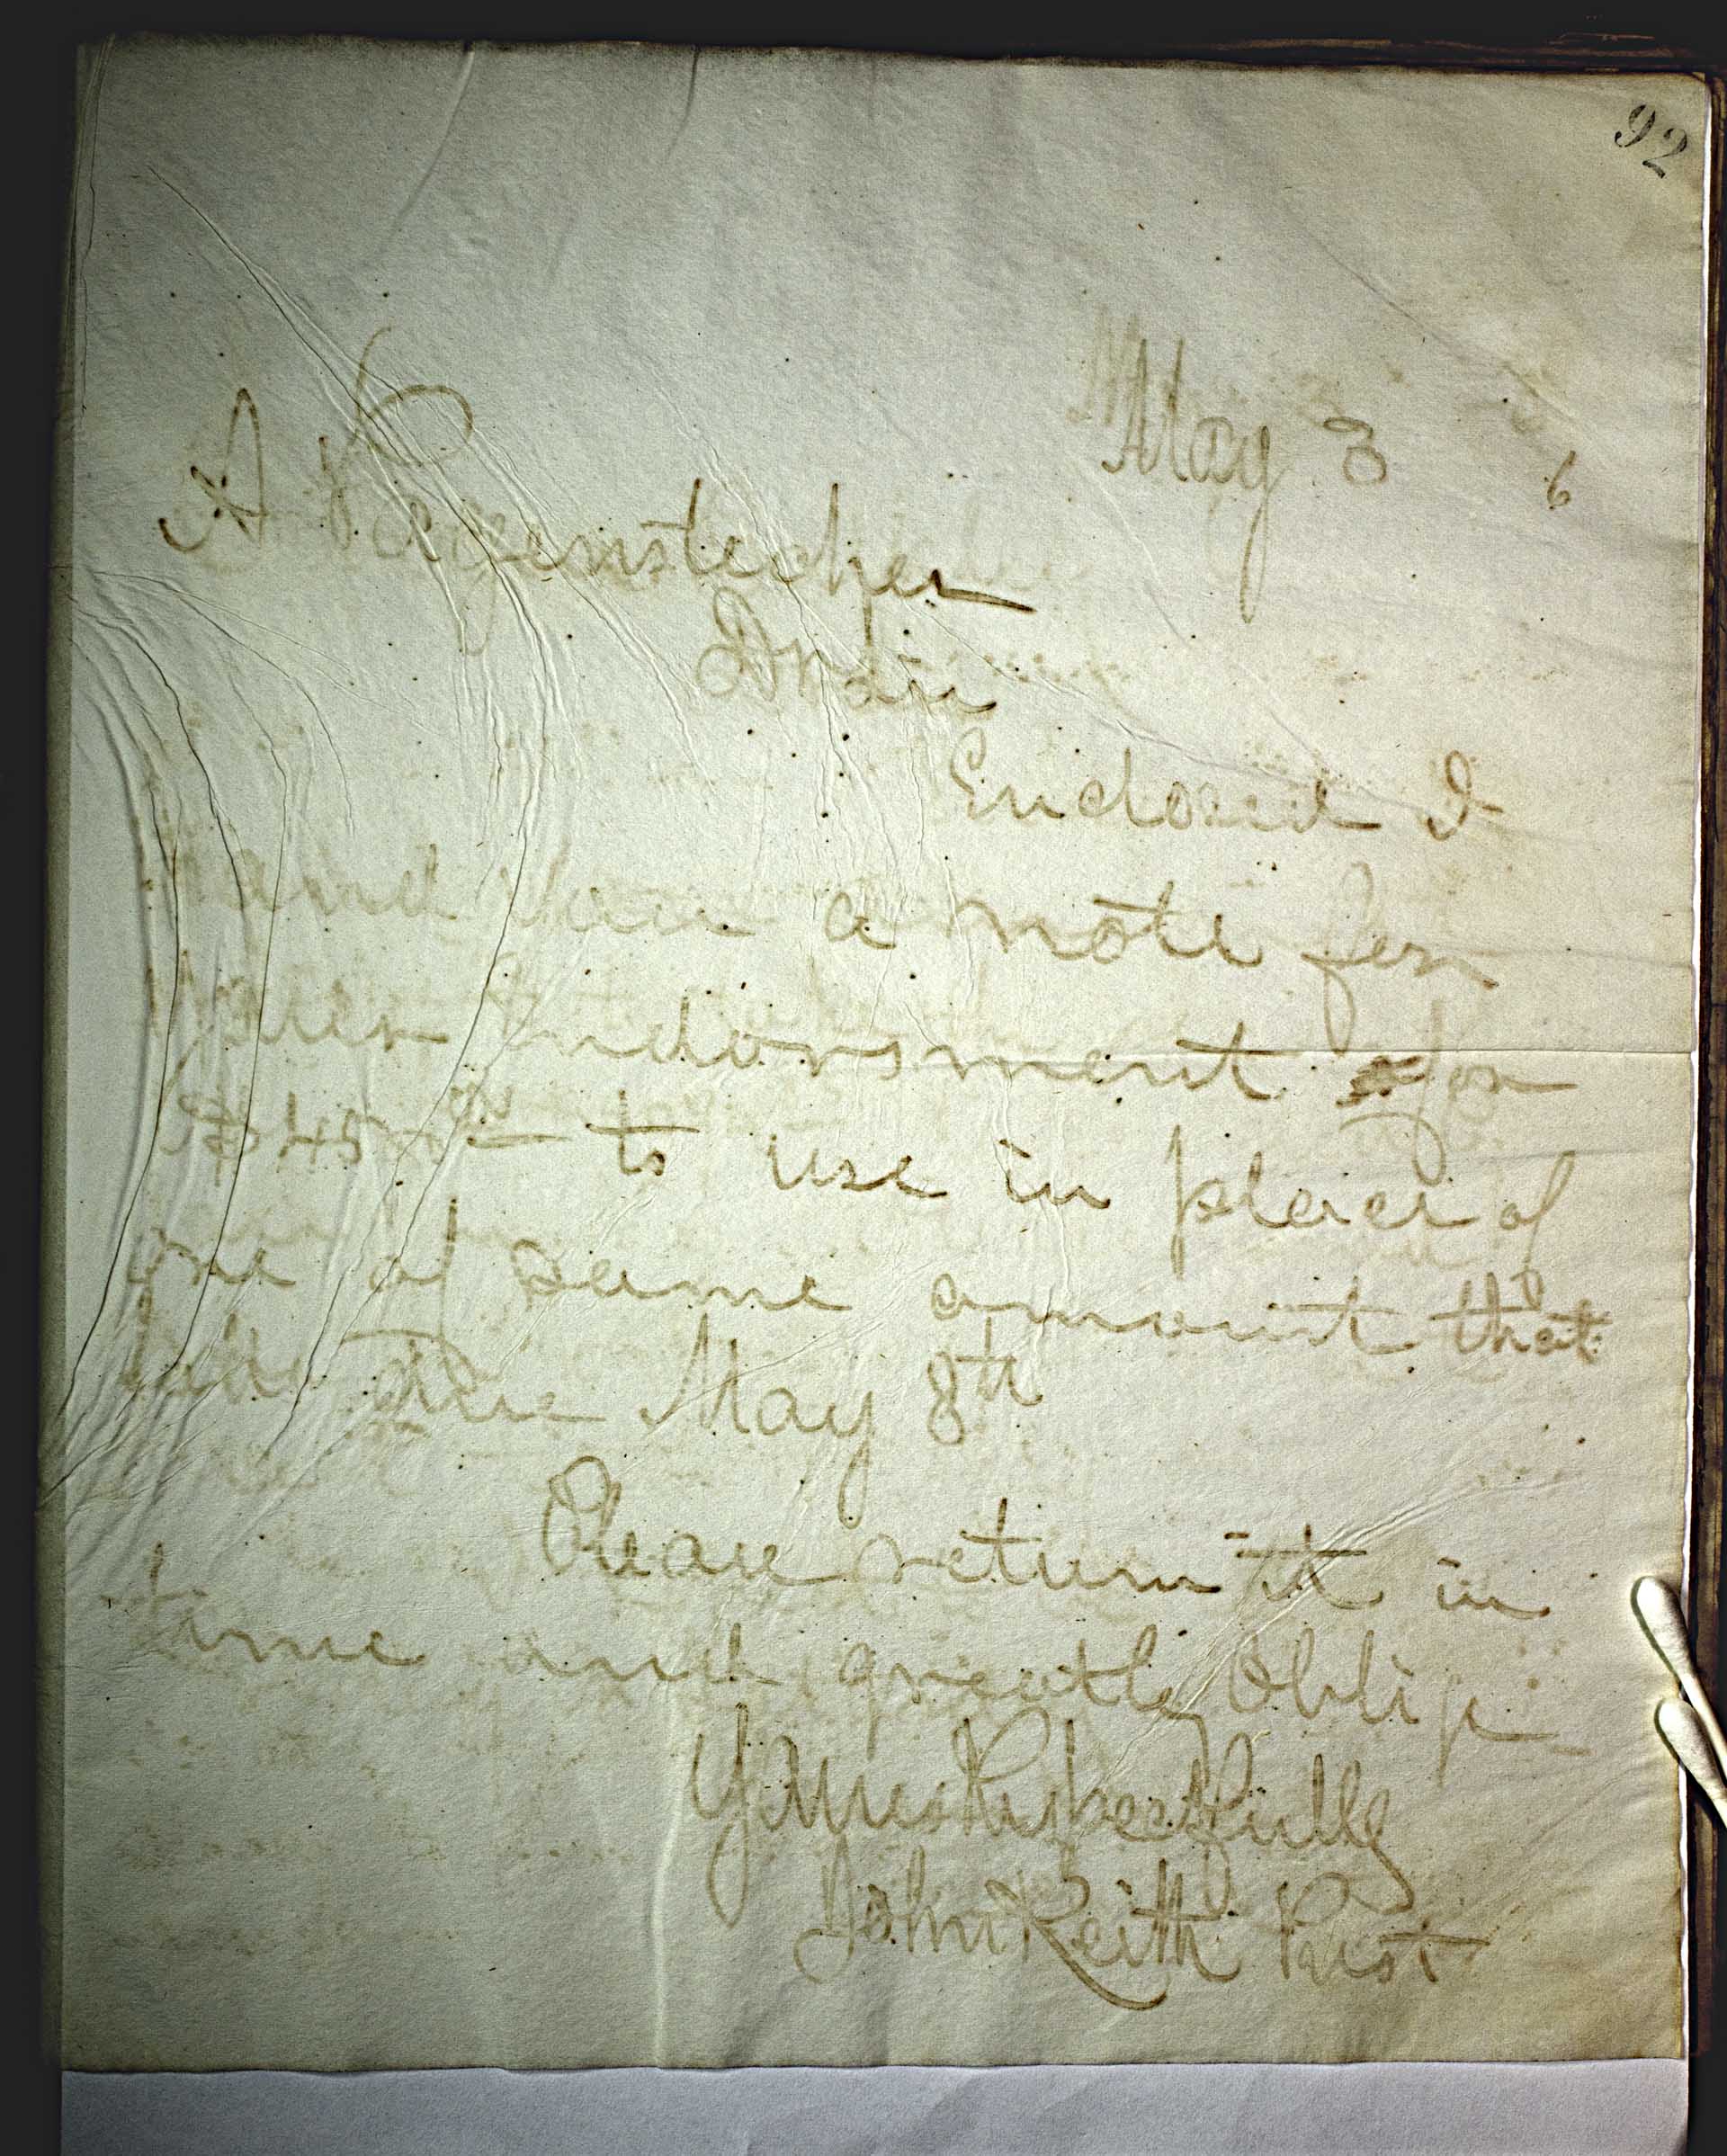 92
May 3 6
A Pagenstecher
Dr Sir
Enclosed I
send you a note for
your Endorsment for
to use in place of
one of same amount that
falls Due May 8th
Please return it in
time and greatly oblige
Yours Respectfully
John Keith Prest